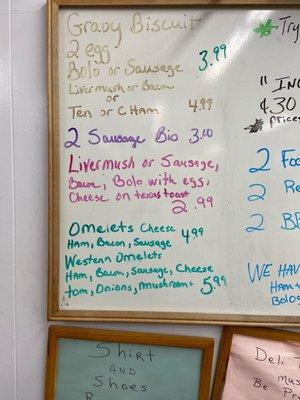 Gravy Biscuit
2 egg
Bolo or Sausage 3.99
Livermush or Bacon
or
Ten or CHam 4.99
2 Sausage Bis 3.00
Livermush or Sausage,
Bacon, Bolo with egg,
Cheese on texas toast
2.99
Omelets Cheese
Ham, Bacon, Sausage 4.99
Western Omelets
Ham, Bacon, Sausage, Cheese
tom, Onions, mushrooms 5.99
Try
"
$30
prices
2
2
2
WE HAV
Ham
Bolog
Shirt
AND
Shoes
R
Deli
mus
Be Pr